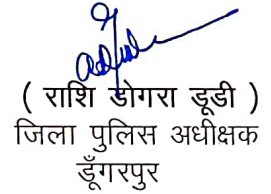 ( राशि डोगरा डूडी )
जिला पुलिस अधीक्षक
डूँगरपुर